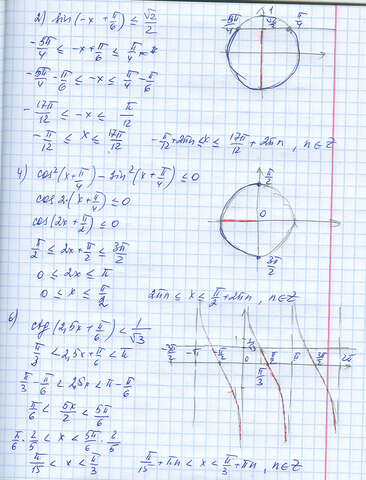 2) sin(-x + π/6) ≤ √2/2
-5π/4 ≤ -x + π/6 ≤ π/4
-5π/4 - π/6 ≤ -x ≤ π/4 - π/6
-17π/12 ≤ -x ≤ π/12
-π/12 ≤ x ≤ 17π/12    -π/12 + 2πn ≤ x ≤ 17π/12 + 2πn, n∈Z
-5π/4  1  √2/2  π/4
4) cos²(x + π/4) - sin²(x + π/4) ≤ 0
cos 2(x + π/4) ≤ 0
cos(2x + π/2) ≤ 0
π/2 ≤ 2x + π/2 ≤ 3π/2
0 ≤ 2x ≤ π
0 ≤ x ≤ π/2    2πn ≤ x ≤ π/2 + 2πn, n∈Z
π/2
0
3π/2
6) ctg(2,5x + π/6) < 1/√3
π/3 < 2,5x + π/6 < π
π/3 - π/6 < 2,5x < π - π/6
π/6 < 5x/2 < 5π/6
π/6 · 2/5 < x < 5π/6 · 2/5
π/15 < x < π/3    π/15 + πn < x < π/3 + πn, n∈Z
-3π/2  -π  -π/2  0  π/2  π  3π/2  2π
π/3